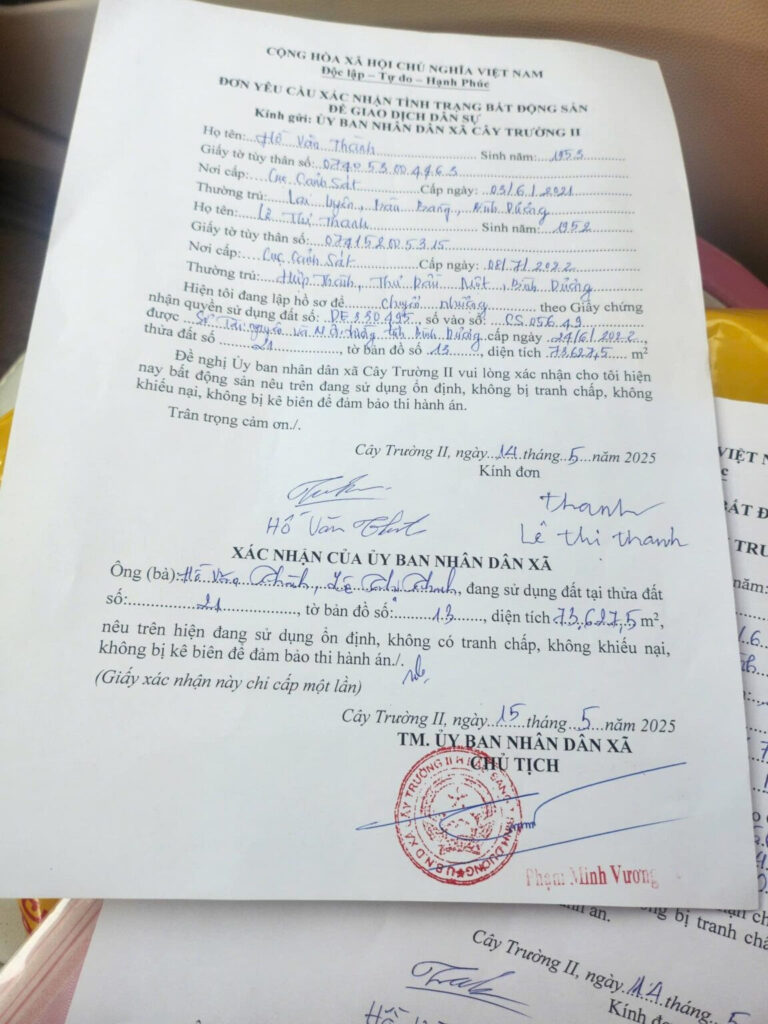 CỘNG HÒA XÃ HỘI CHỦ NGHĨA VIỆT NAM
Độc lập – Tự do – Hạnh Phúc
ĐƠN YÊU CẦU XÁC NHẬN TÌNH TRẠNG BẤT ĐỘNG SẢN
ĐỂ GIAO DỊCH DÂN SỰ
Kính gửi: ỦY BAN NHÂN DÂN XÃ CÂY TRƯỜNG II
Họ tên: Hồ Văn Thành Sinh năm: 1953
Giấy tờ tùy thân số: 074053004463
Nơi cấp: Cục Cảnh Sát Cấp ngày: 03/6/2021
Thường trú: Lai Uyên, Bàu Bàng, Bình Dương
Họ tên: Lê Thị Thanh Sinh năm: 1952
Giấy tờ tùy thân số: 074152005315
Nơi cấp: Cục Cảnh Sát Cấp ngày: 08/7/2022
Thường trú: Hiệp Thành, Thủ Dầu Một, Bình Dương
Hiện tôi đang lập hồ sơ để chuyển nhượng theo Giấy chứng
nhận quyền sử dụng đất số: DE 330495, số vào sổ: CS 05649
được Sở Tài nguyên và Môi trường tỉnh Bình Dương cấp ngày 24/6/2022,
thửa đất số 21, tờ bản đồ số 13, diện tích 73,627,5 m²
Đề nghị Ủy ban nhân dân xã Cây Trường II vui lòng xác nhận cho tôi hiện
nay bất động sản nêu trên đang sử dụng ổn định, không bị tranh chấp, không
khiếu nại, không bị kê biên để đảm bảo thi hành án.
Trân trọng cảm ơn./.
Cây Trường II, ngày 14 tháng 5 năm 2025
Kính đơn
Hồ Văn thanh
Lê thi thanh
XÁC NHẬN CỦA ỦY BAN NHÂN DÂN XÃ
Ông (bà): Hồ Văn Thành, Lê Thị Thanh, đang sử dụng đất tại thửa đất
số: 21, tờ bản đồ số: 13, diện tích 73,627,5 m²,
nêu trên hiện đang sử dụng ổn định, không có tranh chấp, không khiếu nại,
không bị kê biên để đảm bảo thi hành án./.
(Giấy xác nhận này chỉ cấp một lần)
Cây Trường II, ngày 15 tháng 5 năm 2025
TM. ỦY BAN NHÂN DÂN XÃ
CHỦ TỊCH
Phạm Minh Vương
Cây Trường II, ngày 14 tháng 5
Kính đơn